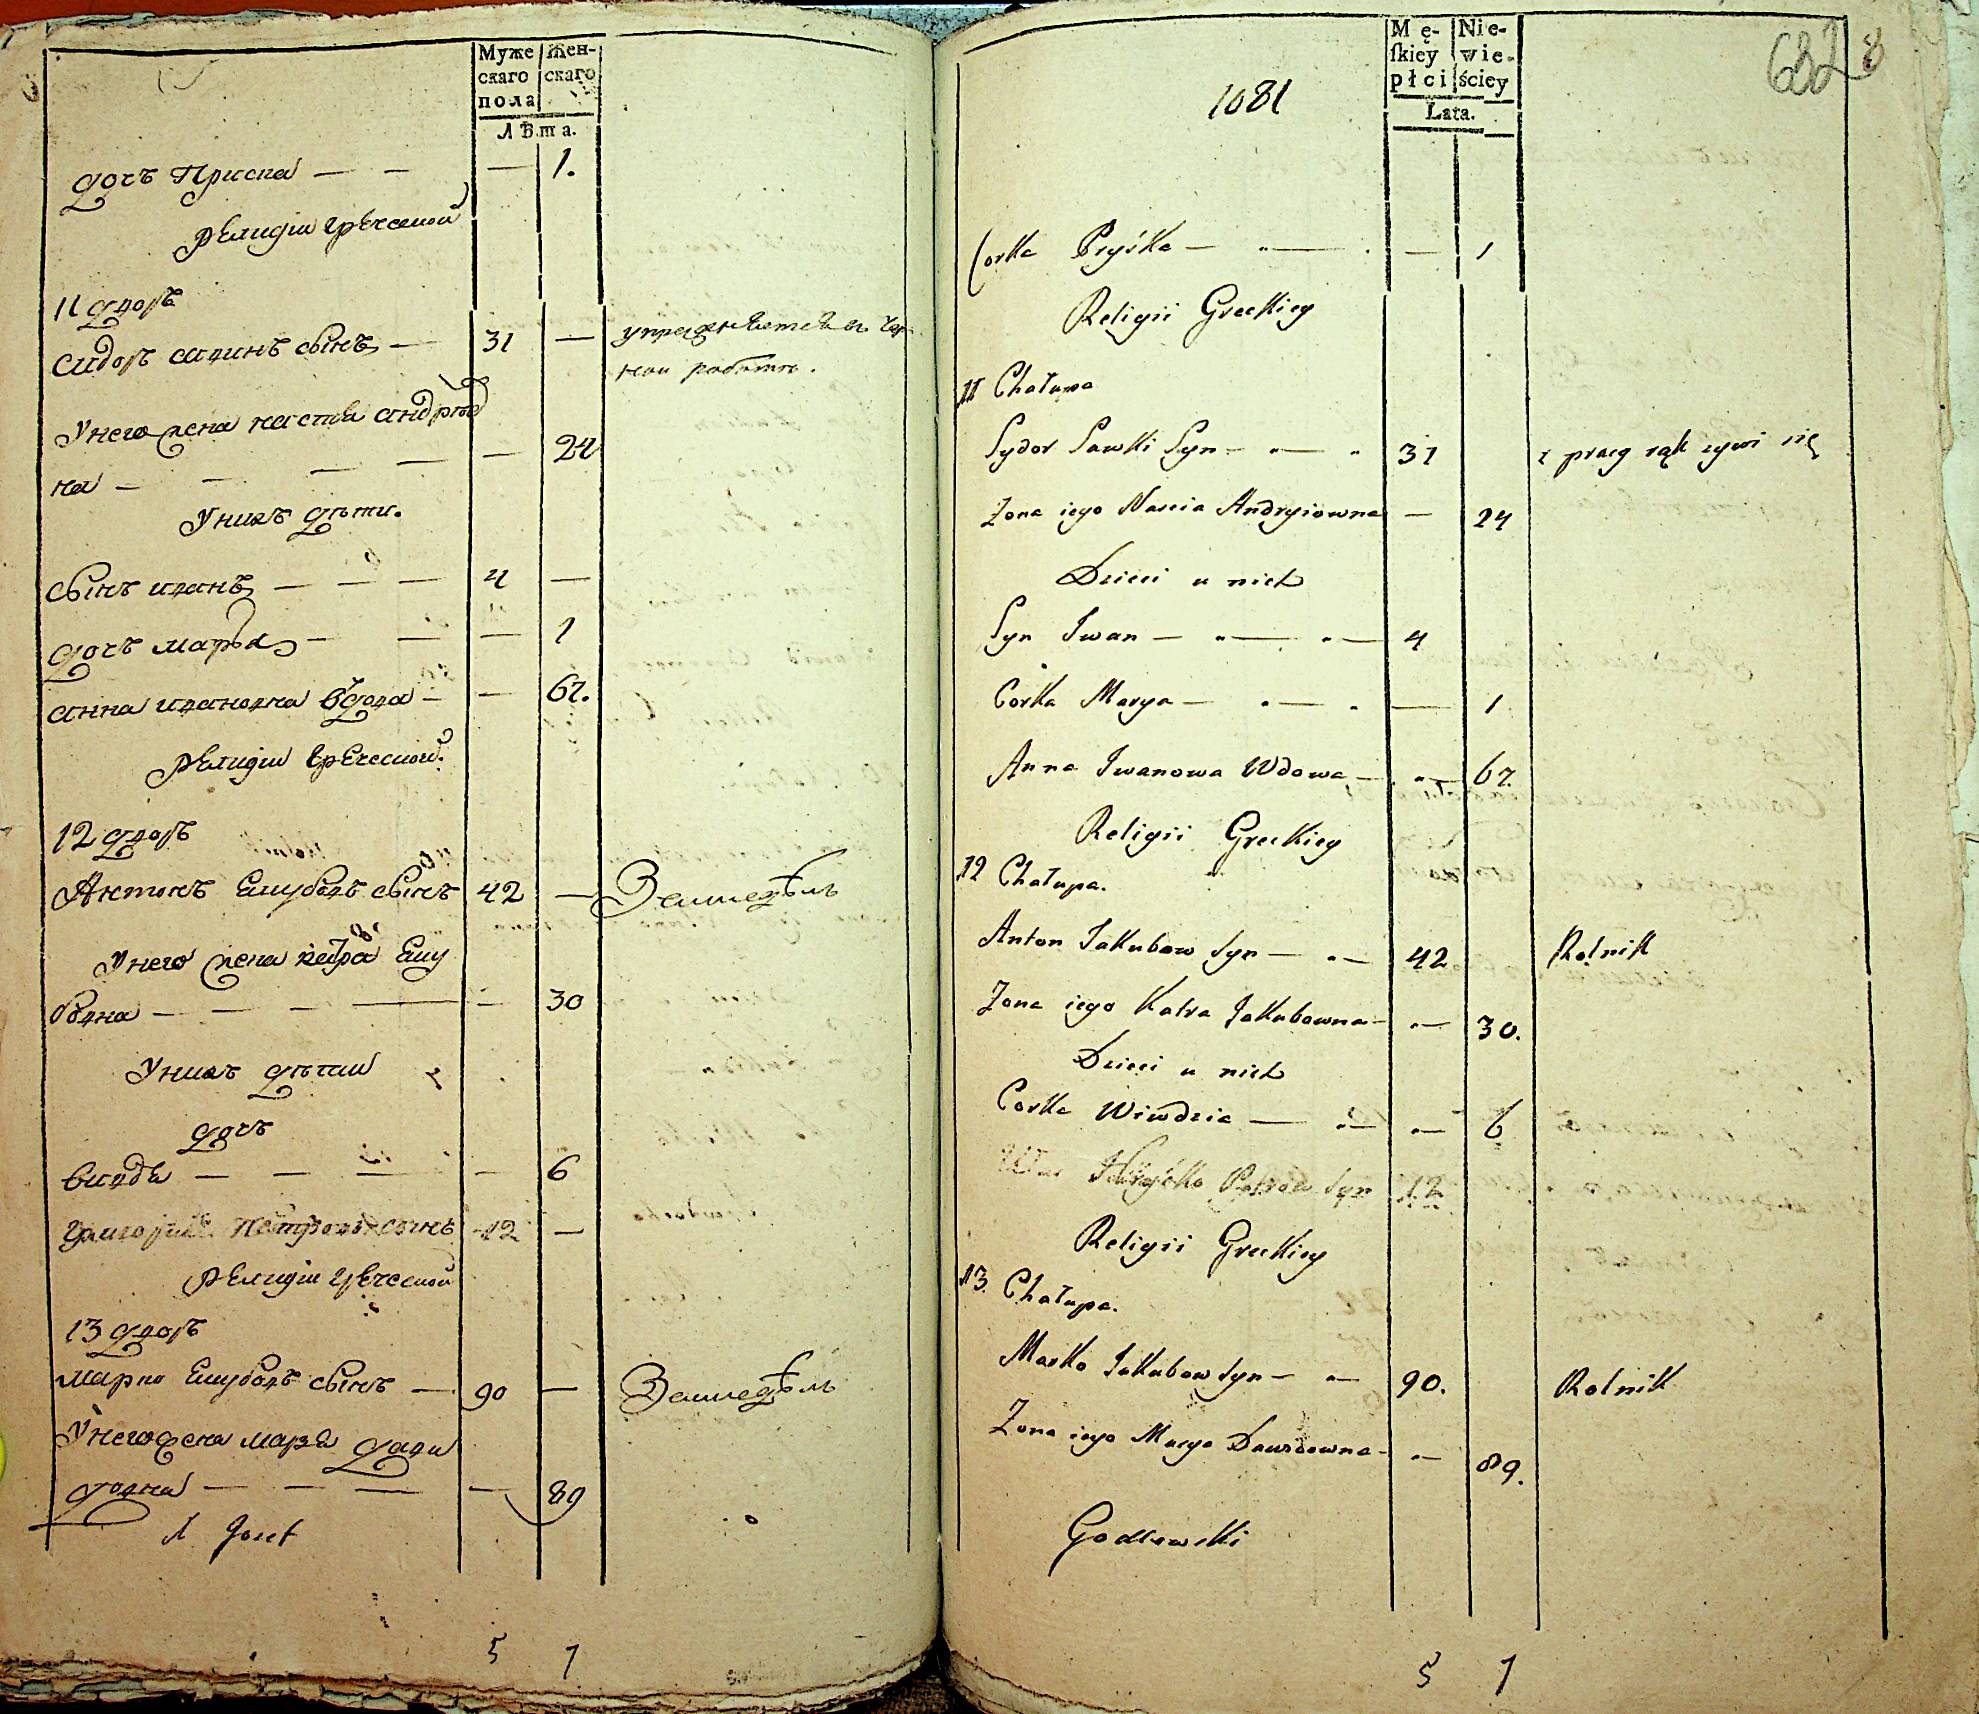 Муже
скаго
пола
Жен-
скаго
Лѣта.
дочъ Приска — — — 1.
религіи греческой
11 дворъ
сидоръ савинъ сынъ — 31 — упражняется в чер
ной работе.
У него жена настя андрѣе
на — — — — — 24
У нихъ дѣти.
сынъ иванъ — — — 4 —
дочъ марья — — — 1
анна ивановна вдова — — 67.
религіи греческой.
12 дворъ
Антонъ якубовъ сынъ 42 — Земледѣль
У него жена катра яку
бовна — — — — — 30
У нихъ дѣти
дочъ
вивдя — — — — 6
григорій петровъ сынъ 12 —
религіи греческой
13 дворъ
марко якубовъ сынъ — 90 — Земледѣль
У него жена марья дави
довна — — — — 89
Jozef
5 7
Mę-
ſkiey
płci
Nie-
wie-
ściey
Lata.
1081
682 8
Corka Pryśka — — — 1
Religii Greckiey
11 Chałupa
Sydor Sawki Syn — — 31 z pracy rąk zywi się
Zona iego Nascia Andryiowna — 24
Dzieci u nich
Syn Iwan — — — 4
Corka Marya — — — 1
Anna Iwanowa Wdowa — — 67.
Religii Greckiey
12 Chałupa.
Anton Jakubow Syn — — 42 Rolnik
Zona iego Katra Jakubowna — — 30.
Dzieci u nich
Corka Wiwdzia — — — 6
Hryćko Petrow Syn 12
Religii Greckiey
13. Chałupa.
Marko Jakubow Syn — — 90. Rolnik
Zona iego Marya Dawidowna — — 89.
Godlewski
5 7